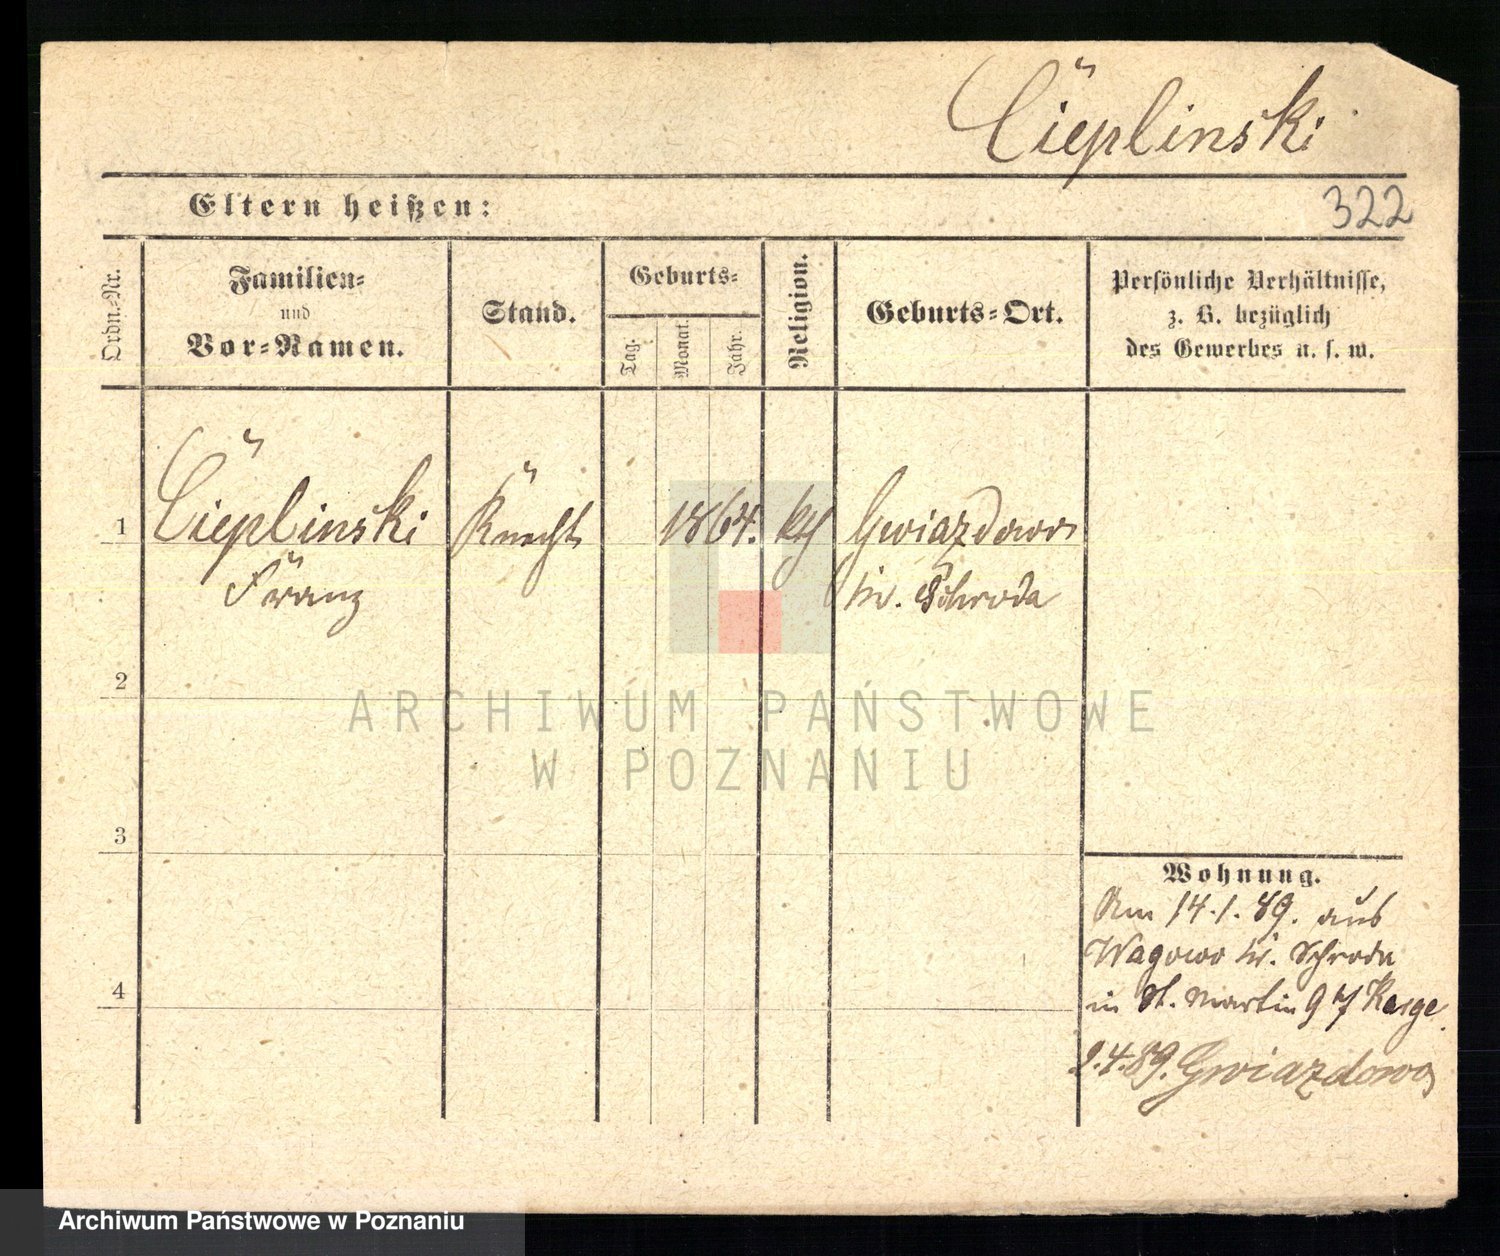 Cieplinski
Eltern heißen:
322
Ordn.-Nr.
Familien-
und
Vor-Namen.
Stand.
Geburts-
Tag.
Monat.
Jahr.
Religion.
Geburts-Ort.
Persönliche Verhältnisse,
z. B. bezüglich
des Gewerbes u. s. w.
1
Cieplinski
Franz
Knecht
1864.
kth
Gwiazdowo
Kr. Schroda
2
ARCHIWUM PAŃSTWOWE
W POZNANIU
3
Wohnung.
Am 14.1.89. aus
Wagowo Kr. Schroda
in St. Martin 9
4
2.4.89. Gwiazdowo
Archiwum Państwowe w Poznaniu